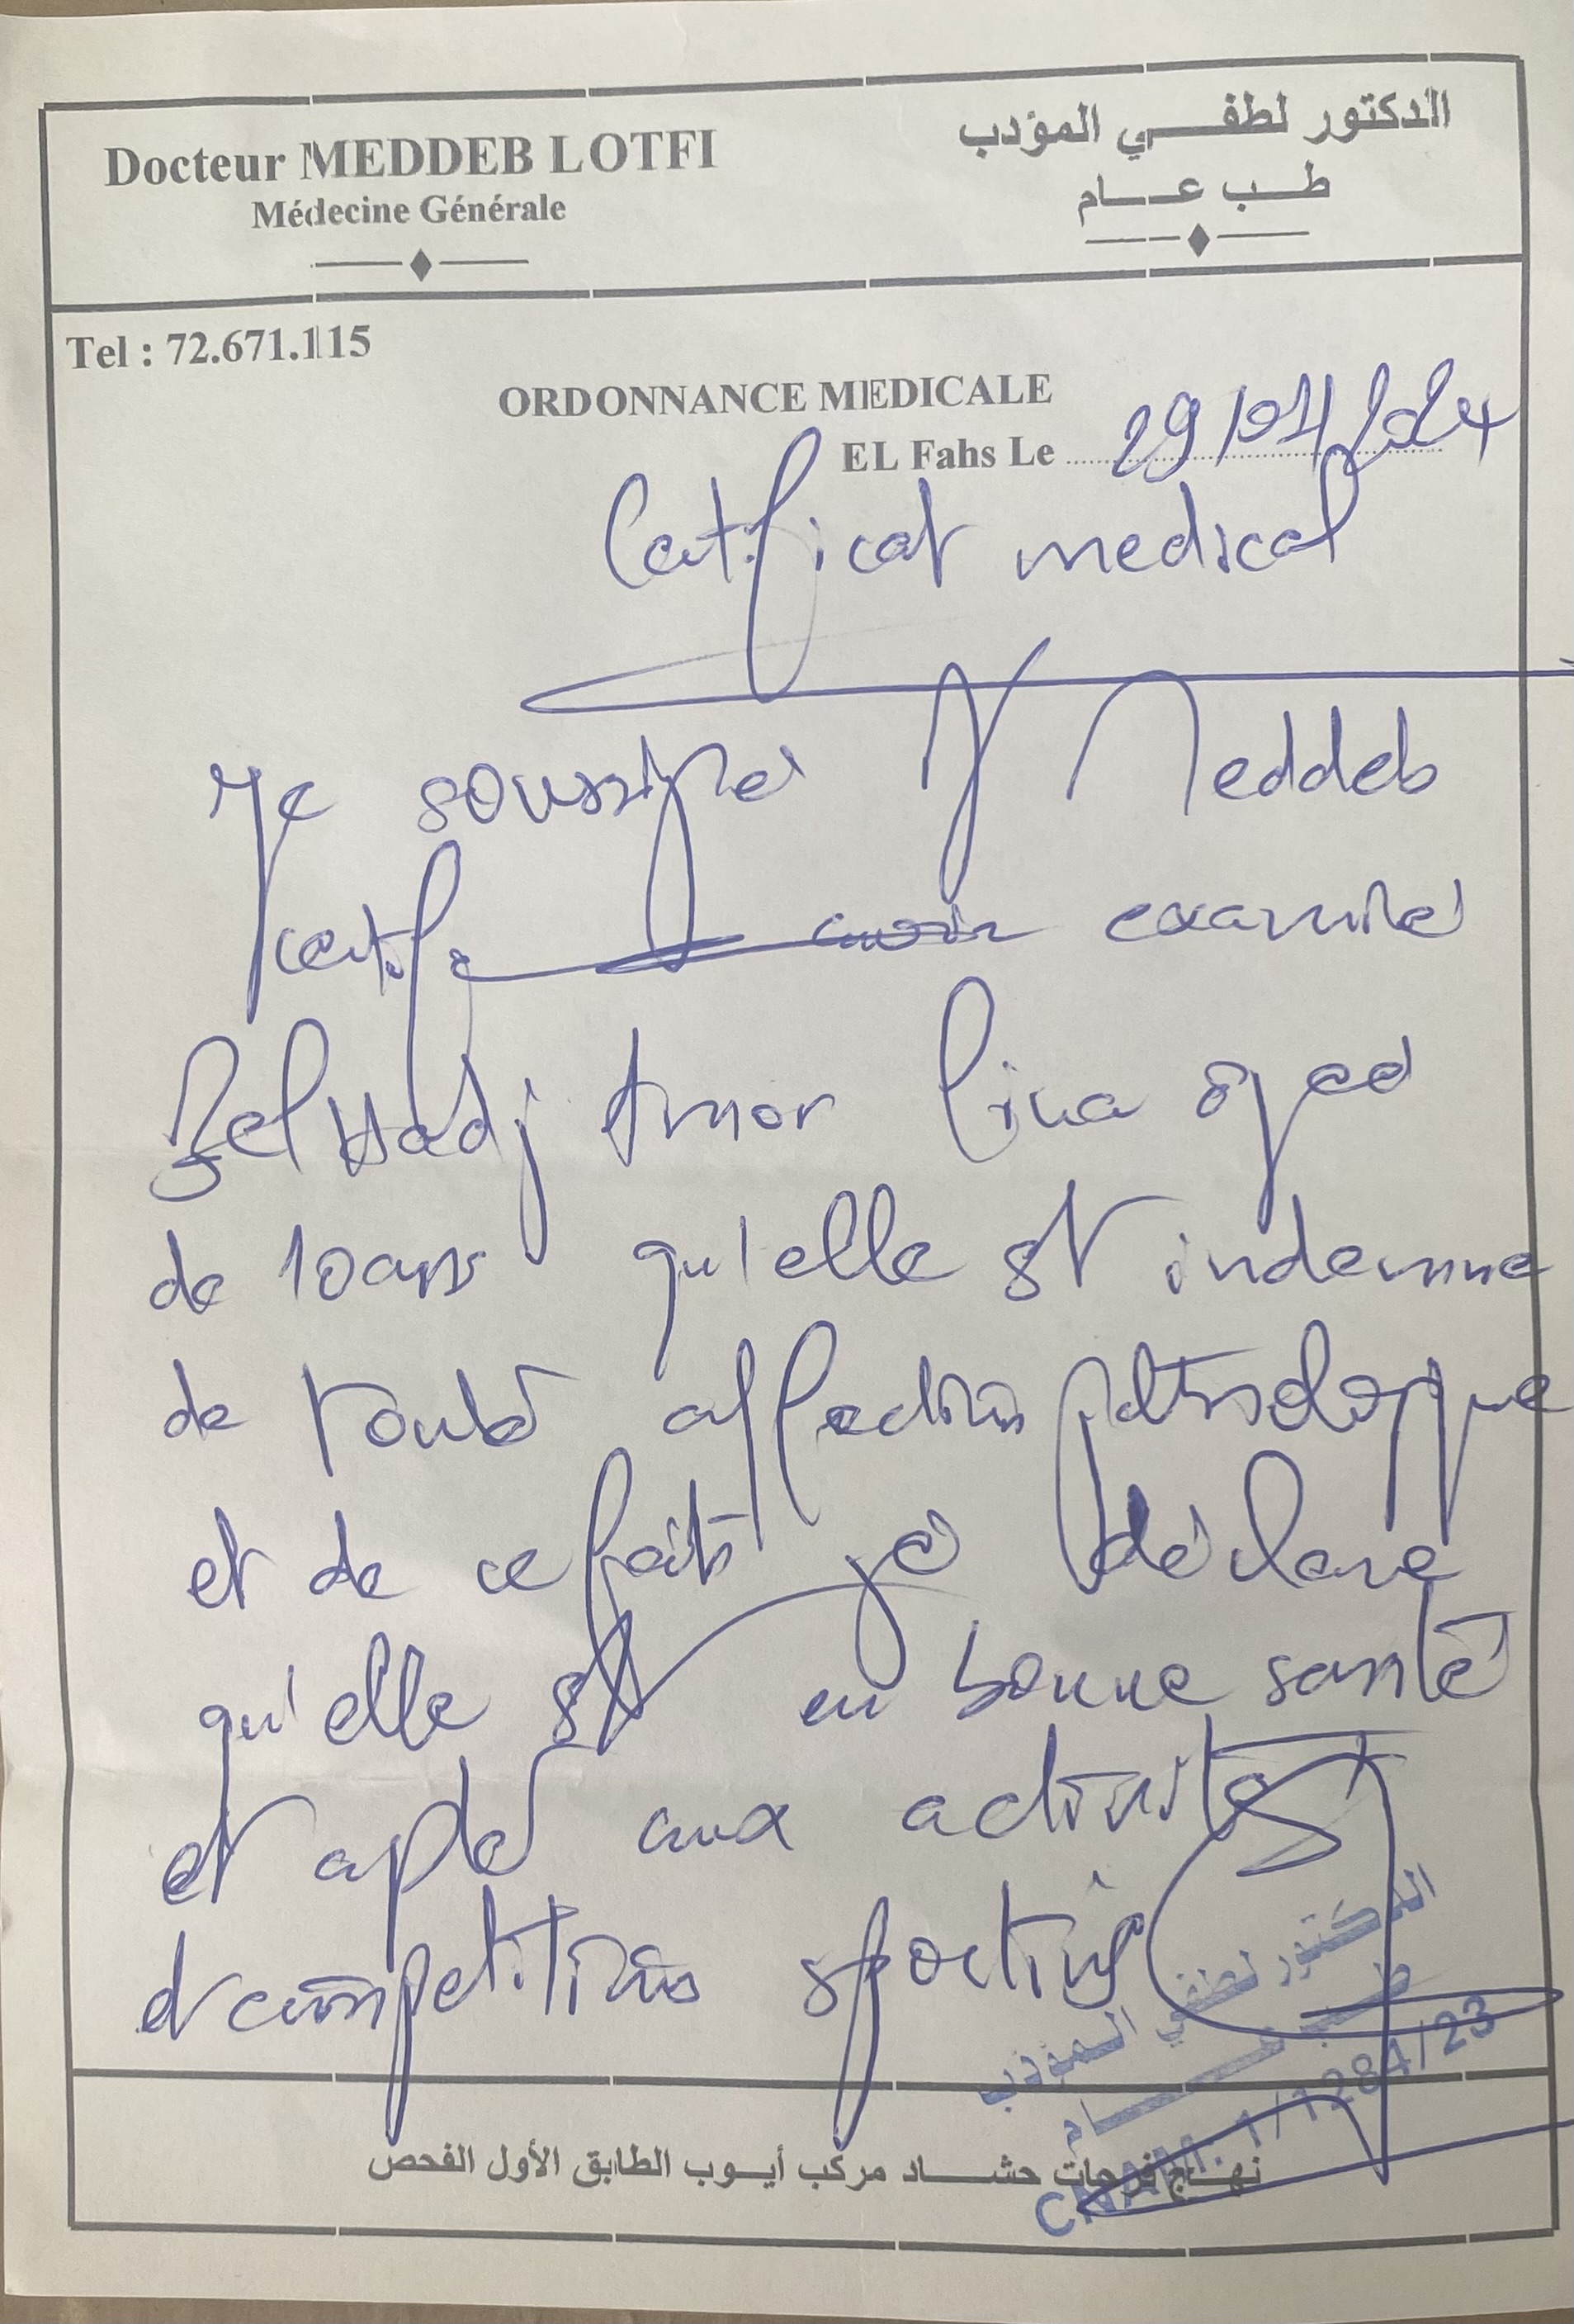 Docteur MEDDEB LOTFI
Médecine Générale
الدكتور لطفي المؤدب
طب عام
Tel : 72.671.115
ORDONNANCE MEDICALE
EL Fahs Le 29/01/2024
Certificat medical
Je soussigné Meddeb
certifie avoir examiné
Bel Hadj Amor Lina
de 10 ans qu'elle est indemne
de toute affection pathologique
et de ce fait je déclare
qu'elle est en bonne santé
et apte aux activités
et compétitions sportives
الدكتور لطفي المؤدب
طب عام
CNAM: 1/1284/23
نهج فرحات حشاد مركب أيوب الطابق الأول الفحص